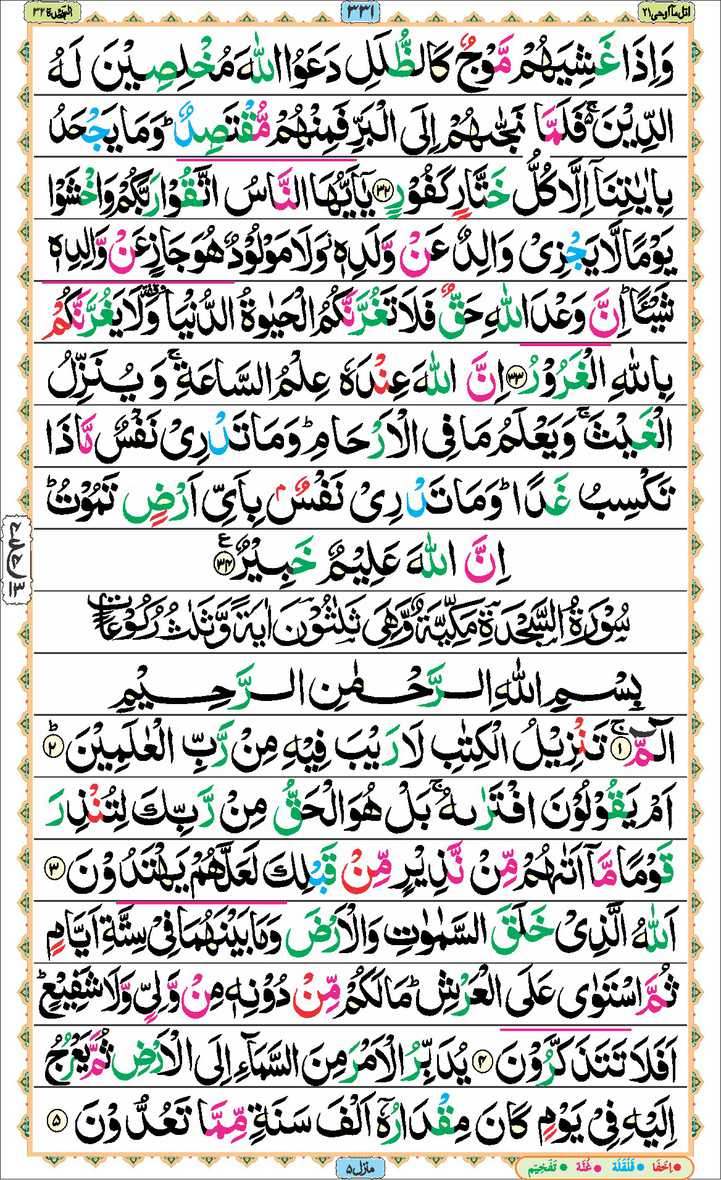 اتل مآ اوحی ۲۱
۳۳۱
السجدة ۳۲
وَاِذَا غَشِيَهُمْ مَّوْجٌ كَالظُّلَلِ دَعَوُا اللّٰهَ مُخْلِصِيْنَ لَهُ
الدِّيْنَ ۚ فَلَمَّا نَجّٰىهُمْ اِلَى الْبَرِّ فَمِنْهُمْ مُّقْتَصِدٌ ؕ وَمَا يَجْحَدُ
بِاٰيٰتِنَاۤ اِلَّا كُلُّ خَتَّارٍ كَفُوْرٍ ﴿۳۲﴾ يٰۤاَيُّهَا النَّاسُ اتَّقُوْا رَبَّكُمْ وَاخْشَوْا
يَوْمًا لَّا يَجْزِىْ وَالِدٌ عَنْ وَّلَدِهٖ ۫ وَلَا مَوْلُوْدٌ هُوَ جَازٍ عَنْ وَّالِدِهٖ
شَيْـًٔا ؕ اِنَّ وَعْدَ اللّٰهِ حَقٌّ فَلَا تَغُرَّنَّكُمُ الْحَيٰوةُ الدُّنْيَا ۥ وَلَا يَغُرَّنَّكُمْ
بِاللّٰهِ الْغَرُوْرُ ﴿۳۳﴾ اِنَّ اللّٰهَ عِنْدَهٗ عِلْمُ السَّاعَةِ ۚ وَيُنَزِّلُ
الْغَيْثَ ۚ وَيَعْلَمُ مَا فِى الْاَرْحَامِ ؕ وَمَا تَدْرِىْ نَفْسٌ مَّاذَا
تَكْسِبُ غَدًا ؕ وَمَا تَدْرِىْ نَفْسٌۢ بِاَىِّ اَرْضٍ تَمُوْتُ ؕ
اِنَّ اللّٰهَ عَلِيْمٌ خَبِيْرٌ ﴿۳۴﴾ ع
سُوْرَةُ السَّجْدَةِ مَكِّيَّةٌ وَّهِىَ ثَلٰثُوْنَ اٰيَةً وَّثَلٰثُ رُكُوْعَاتٍ
بِسْمِ اللّٰهِ الرَّحْمٰنِ الرَّحِيْمِ
الٓمّٓ ۚ ﴿۱﴾ تَنْزِيْلُ الْكِتٰبِ لَا رَيْبَ فِيْهِ مِنْ رَّبِّ الْعٰلَمِيْنَ ؕ ﴿۲﴾
اَمْ يَقُوْلُوْنَ افْتَرٰىهُ ۚ بَلْ هُوَ الْحَقُّ مِنْ رَّبِّكَ لِتُنْذِرَ
قَوْمًا مَّاۤ اَتٰىهُمْ مِّنْ نَّذِيْرٍ مِّنْ قَبْلِكَ لَعَلَّهُمْ يَهْتَدُوْنَ ﴿۳﴾
اَللّٰهُ الَّذِىْ خَلَقَ السَّمٰوٰتِ وَالْاَرْضَ وَمَا بَيْنَهُمَا فِىْ سِتَّةِ اَيَّامٍ
ثُمَّ اسْتَوٰى عَلَى الْعَرْشِ ؕ مَا لَكُمْ مِّنْ دُوْنِهٖ مِنْ وَّلِىٍّ وَّلَا شَفِيْعٍ ؕ
اَفَلَا تَتَذَكَّرُوْنَ ﴿۴﴾ يُدَبِّرُ الْاَمْرَ مِنَ السَّمَآءِ اِلَى الْاَرْضِ ثُمَّ يَعْرُجُ
اِلَيْهِ فِىْ يَوْمٍ كَانَ مِقْدَارُهٗۤ اَلْفَ سَنَةٍ مِّمَّا تَعُدُّوْنَ ﴿۵﴾
منزل ۵
اِخفا • قَلْقَلَة • غُنَّة • تَفخِيم